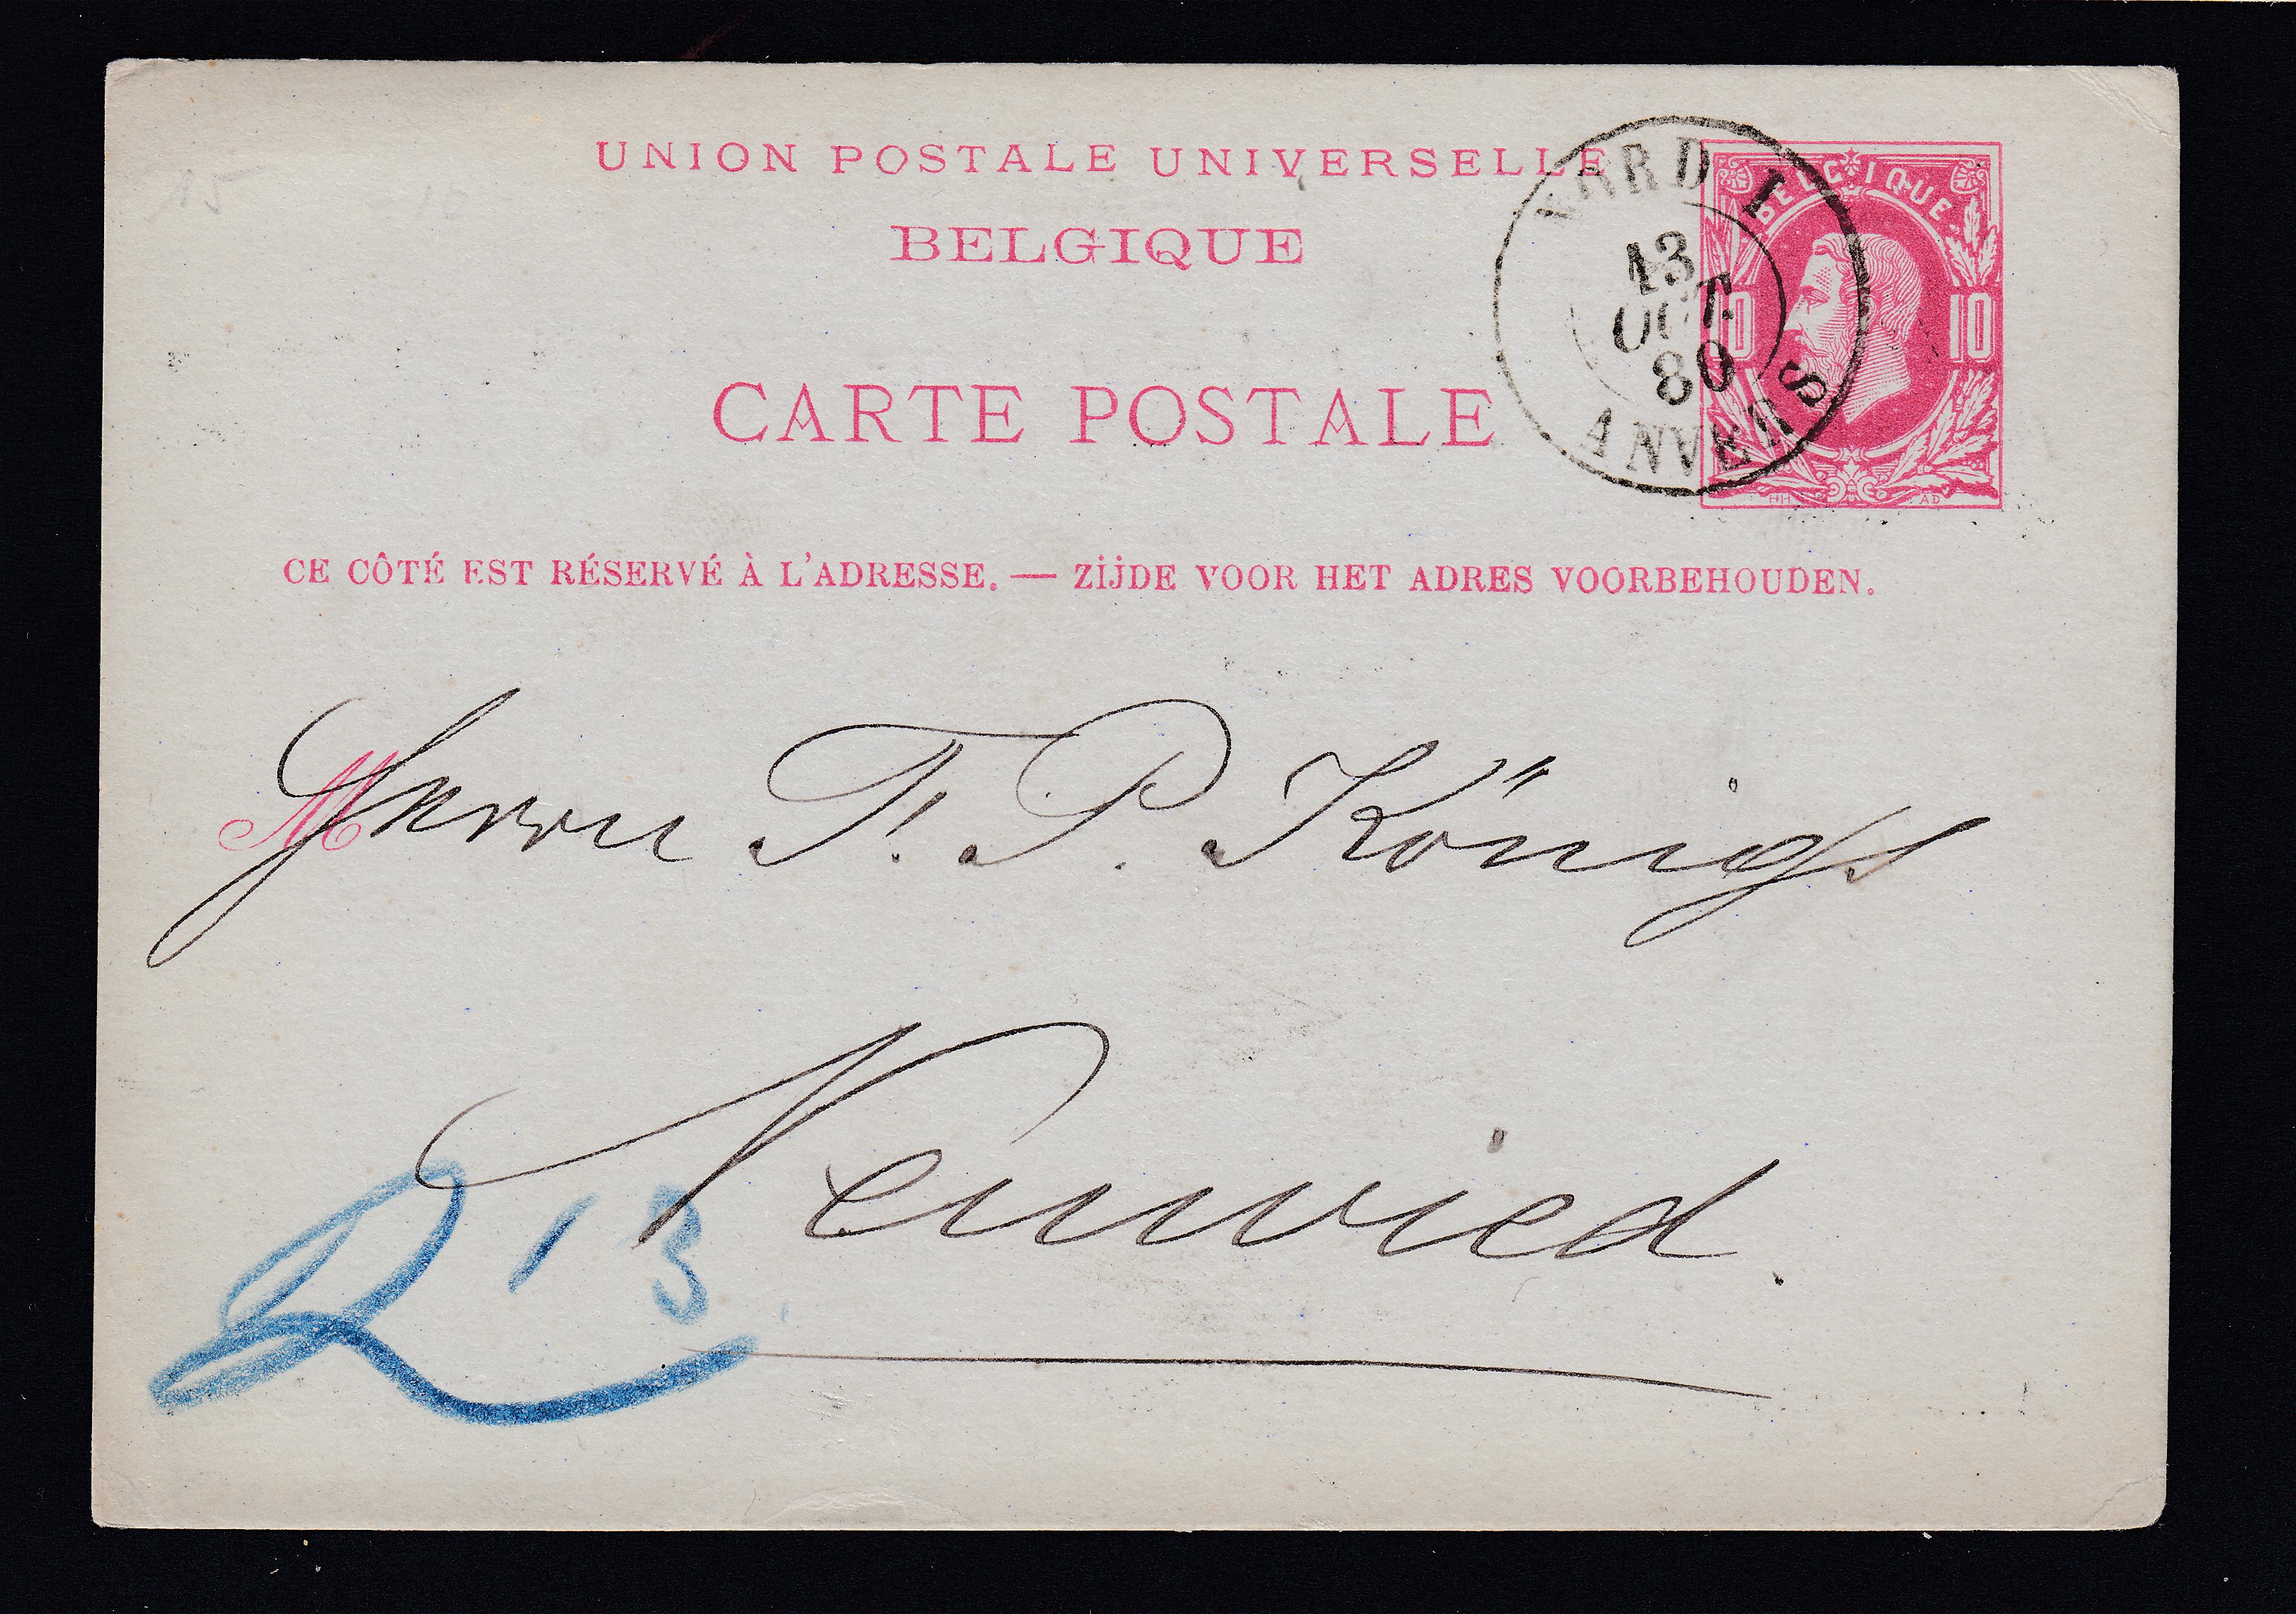 UNION POSTALE UNIVERSELLE
BELGIQUE
CARTE POSTALE
NORD I
13
OCT.
80
ANVERS
BELGIQUE
10 10
HH AD
CE CÔTÉ EST RÉSERVÉ À L'ADRESSE. — ZIJDE VOOR HET ADRES VOORBEHOUDEN.
M
Herrn F. P. Königs
Neuwied.
13
15